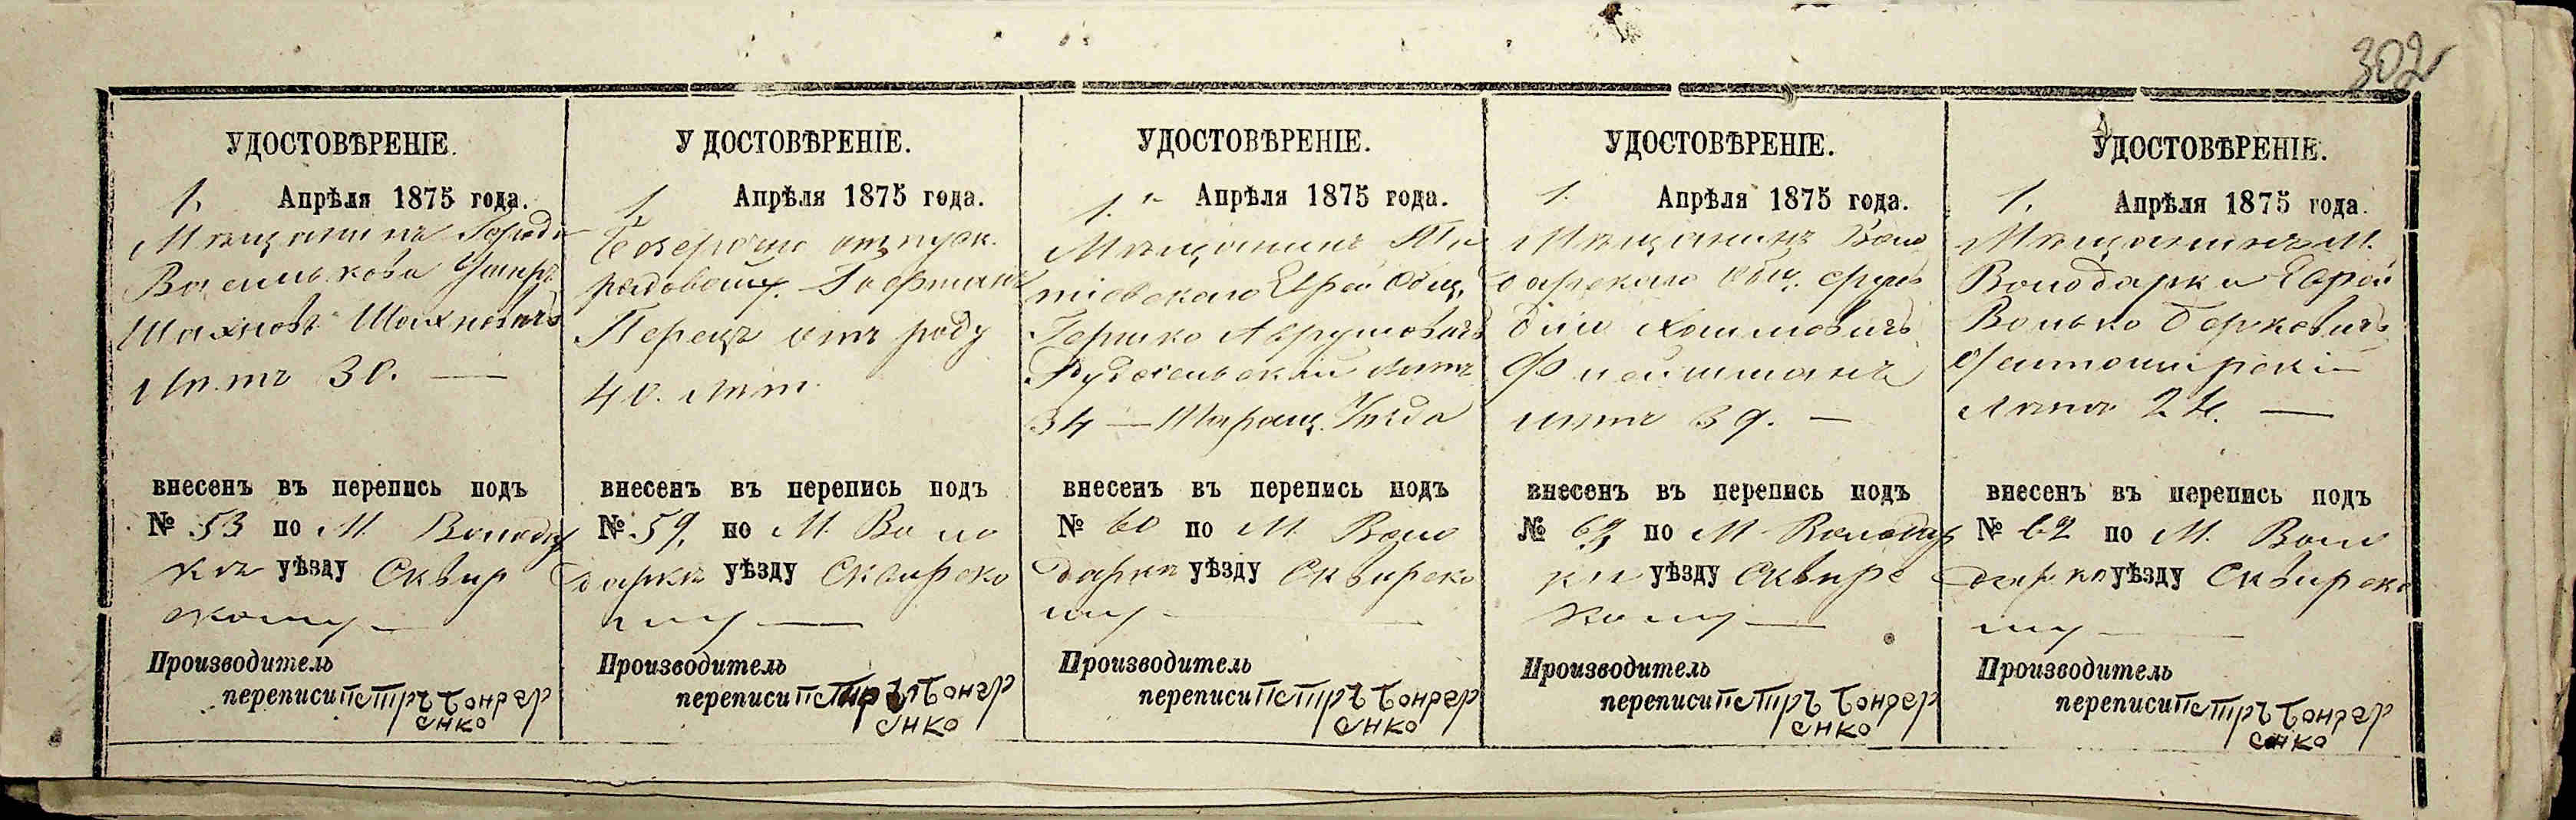 302
УДОСТОВѢРЕНІЕ.
1. Апрѣля 1875 года.
Мѣщанинъ Города
Василькова
Шахновъ Шахновичъ
лѣтъ 30. —
внесенъ въ перепись подъ
№ 53 по М. Володар
кѣ уѣзду Сквир
скому —
Производитель
переписи Петръ Бондар
енко
У ДОСТОВѢРЕНІЕ.
1. Апрѣля 1875 года.
Безсрочно отпуск.
рядовой Гофманъ
Перецъ отъ роду
40. лѣт.
внесенъ въ перепись подъ
№ 59, по М. Воло
даркѣ уѣзду Сквирско
му —
Производитель
переписи Петръ Бондар
енко
УДОСТОВѢРЕНІЕ.
1. Апрѣля 1875 года.
Мѣщанинъ Пя
тіевскаго Еврей Общ.
Гершко Аврумовичъ
лѣтъ
34 — Таращ. Уѣзда
внесенъ въ перепись подъ
№ 60 по М. Воло
даркѣ уѣзду Сквирско
му —
Производитель
переписи Петръ Бондар
енко
УДОСТОВѢРЕНІЕ.
1. Апрѣля 1875 года.
Мѣщанинъ Воло
дарскаго Общ. Сруль
Хаимовичъ
Флейшманъ
лѣтъ 39. —
внесенъ въ перепись подъ
№ по М. Володар
кѣ уѣзду Сквирс
кому —
Производитель
переписи Петръ Бондар
енко
УДОСТОВѢРЕНІЕ.
1. Апрѣля 1875 года.
Мѣщанинъ М.
Володарки Еврей
Волько Берковичъ
лѣтъ 24. —
внесенъ въ перепись подъ
№ 62 по М. Воло
даркѣ уѣзду Сквирско
му —
Производитель
переписи Петръ Бондар
енко